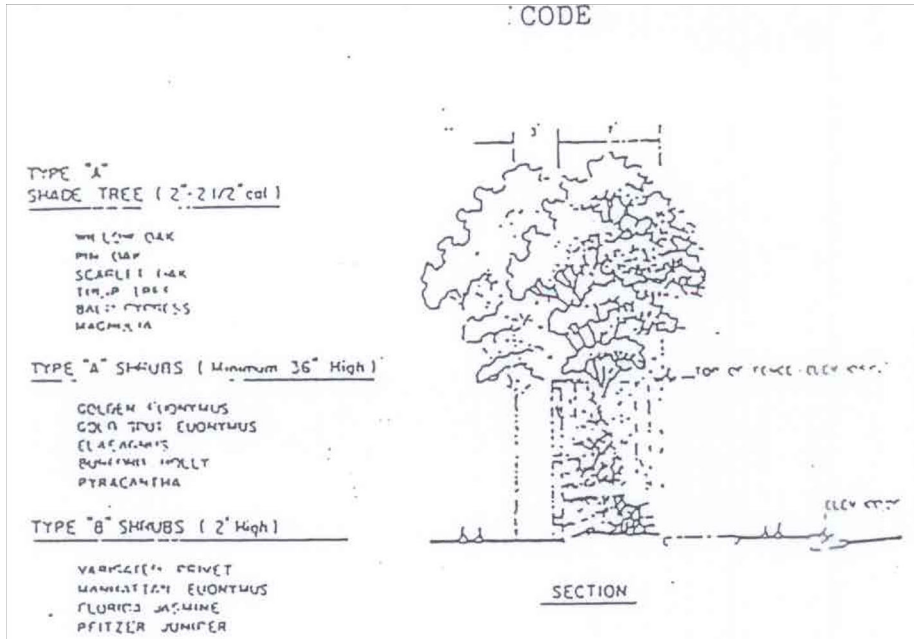 CODE
3'
TYPE "A"
SHADE TREE ( 2"-2 1/2" cal )
WILLOW OAK
PIN OAK
SCARLET OAK
TULIP TREE
BALD CYPRESS
MAGNOLIA
TYPE "A" SHRUBS ( Minimum 36" High )
TOP OF FENCE-ELEV
GOLDEN EUONYMUS
GOLD SPOT EUONYMUS
ELAEAGNUS
BURFORD HOLLY
PYRACANTHA
ELEV
TYPE "B" SHRUBS ( 2' High )
VARIGATED PRIVET
MANHATTAN EUONYMUS
FLORIDA JASMINE
PFITZER JUNIPER
SECTION